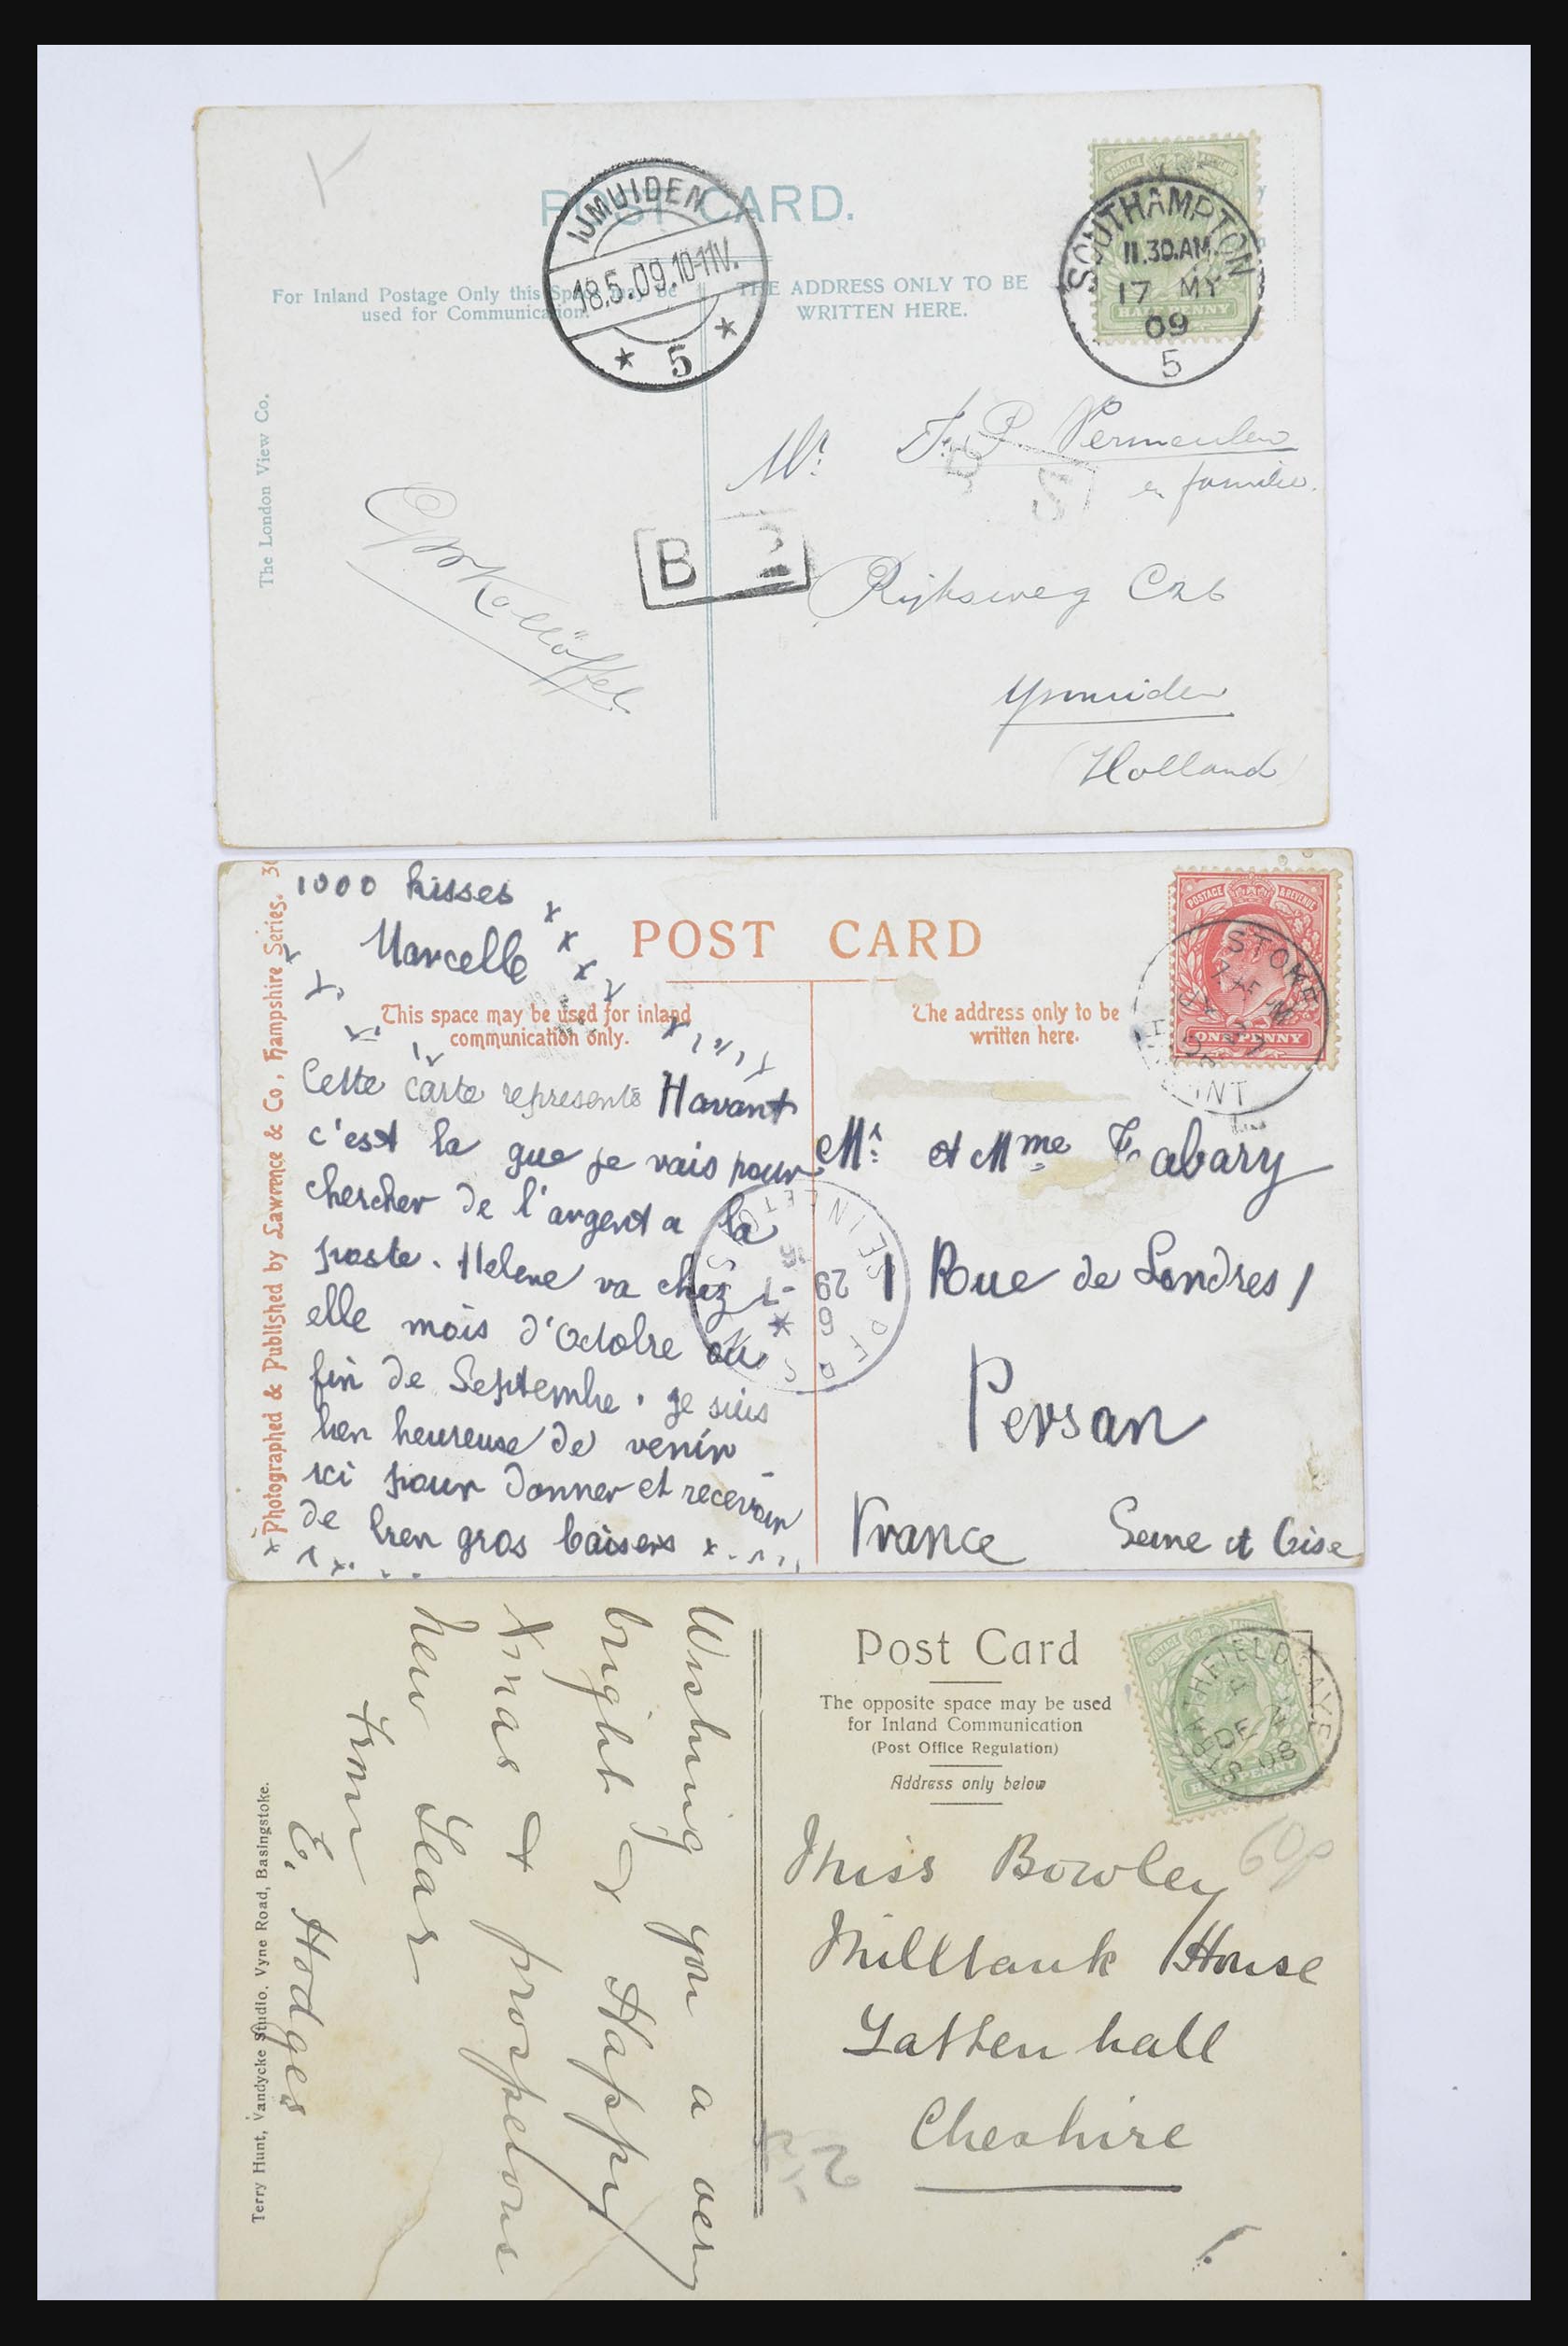 POST CARD.
IJMUIDEN
18.5.09.10-11V.
* 5 *
SOUTHAMPTON
11.30.AM.
17 MY
09
5
HALFPENNY
For Inland Postage Only this Space may be
used for Communication.
THE ADDRESS ONLY TO BE
WRITTEN HERE.
The London View Co.
Mr. Vermeulen
en familie.
B
Rijksweg C26
Ymuiden
(Holland)
Photographed & Published by Lawrence & Co, Hampshire Series.
1000 kisses
Marcelle
POST CARD
POSTAGE & REVENUE
ONE PENNY
This space may be used for inland
communication only.
The address only to be
written here.
Cette carte represente Havant
c'est la que je vais pour
chercher de l'argent a la
poste. Helene va chez
elle mois d'Octobre ou
fin de Septembre. Je suis
bien heureuse de venir
ici pour donner et recevoir
de bien gros baisers
Mr. et Mme Tabary
1 Rue de Londres 1
Persan
France Seine et Oise
Post Card
The opposite space may be used
for Inland Communication
(Post Office Regulation)
Address only below
HEATHFIELD.
DE 24
08
Miss Bowley
Millbank House
Tattenhall
Cheshire
60p
Wishing you a very
bright & Happy
Xmas & prosperous
New Year
From
E. Hodges
Terry Hunt, Vandycke Studio, Vyne Road, Basingstoke.